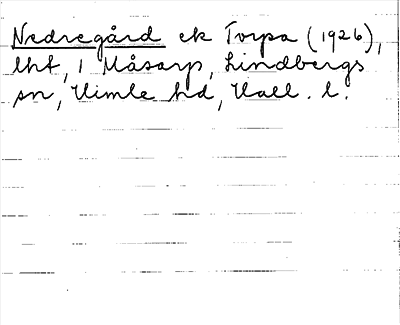 Nedregård ek Torpa (1926),
lht, 1 Måsarp, Lindbergs
sn, Himle hd, Hall. l.